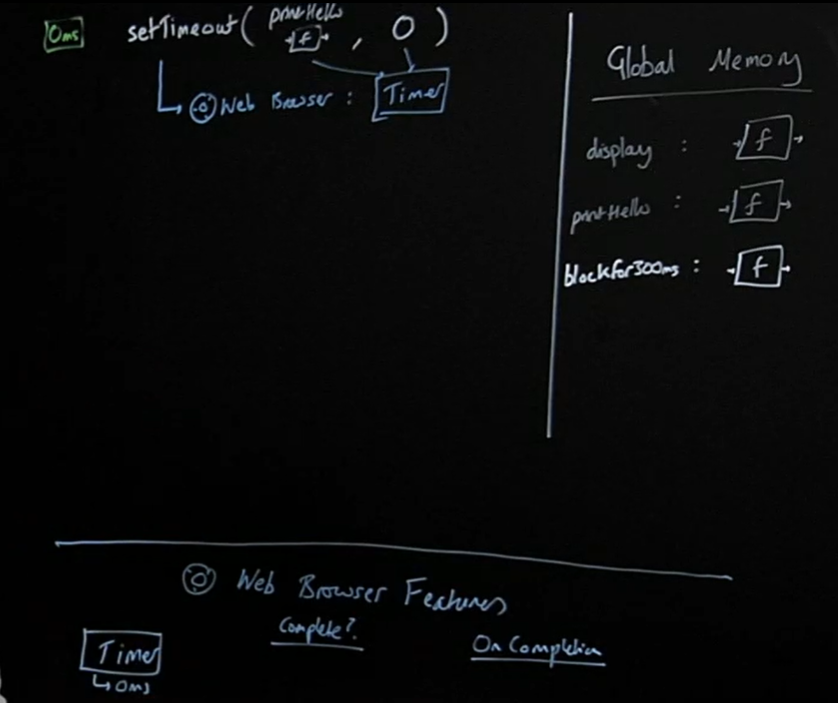 0ms setTimeout( printHello f , 0 )
Web Browser : Timer
Global Memory
display : f
printHello : f
blockfor300ms : f
Web Browser Features
Complete?
On Completion
Timer
0ms